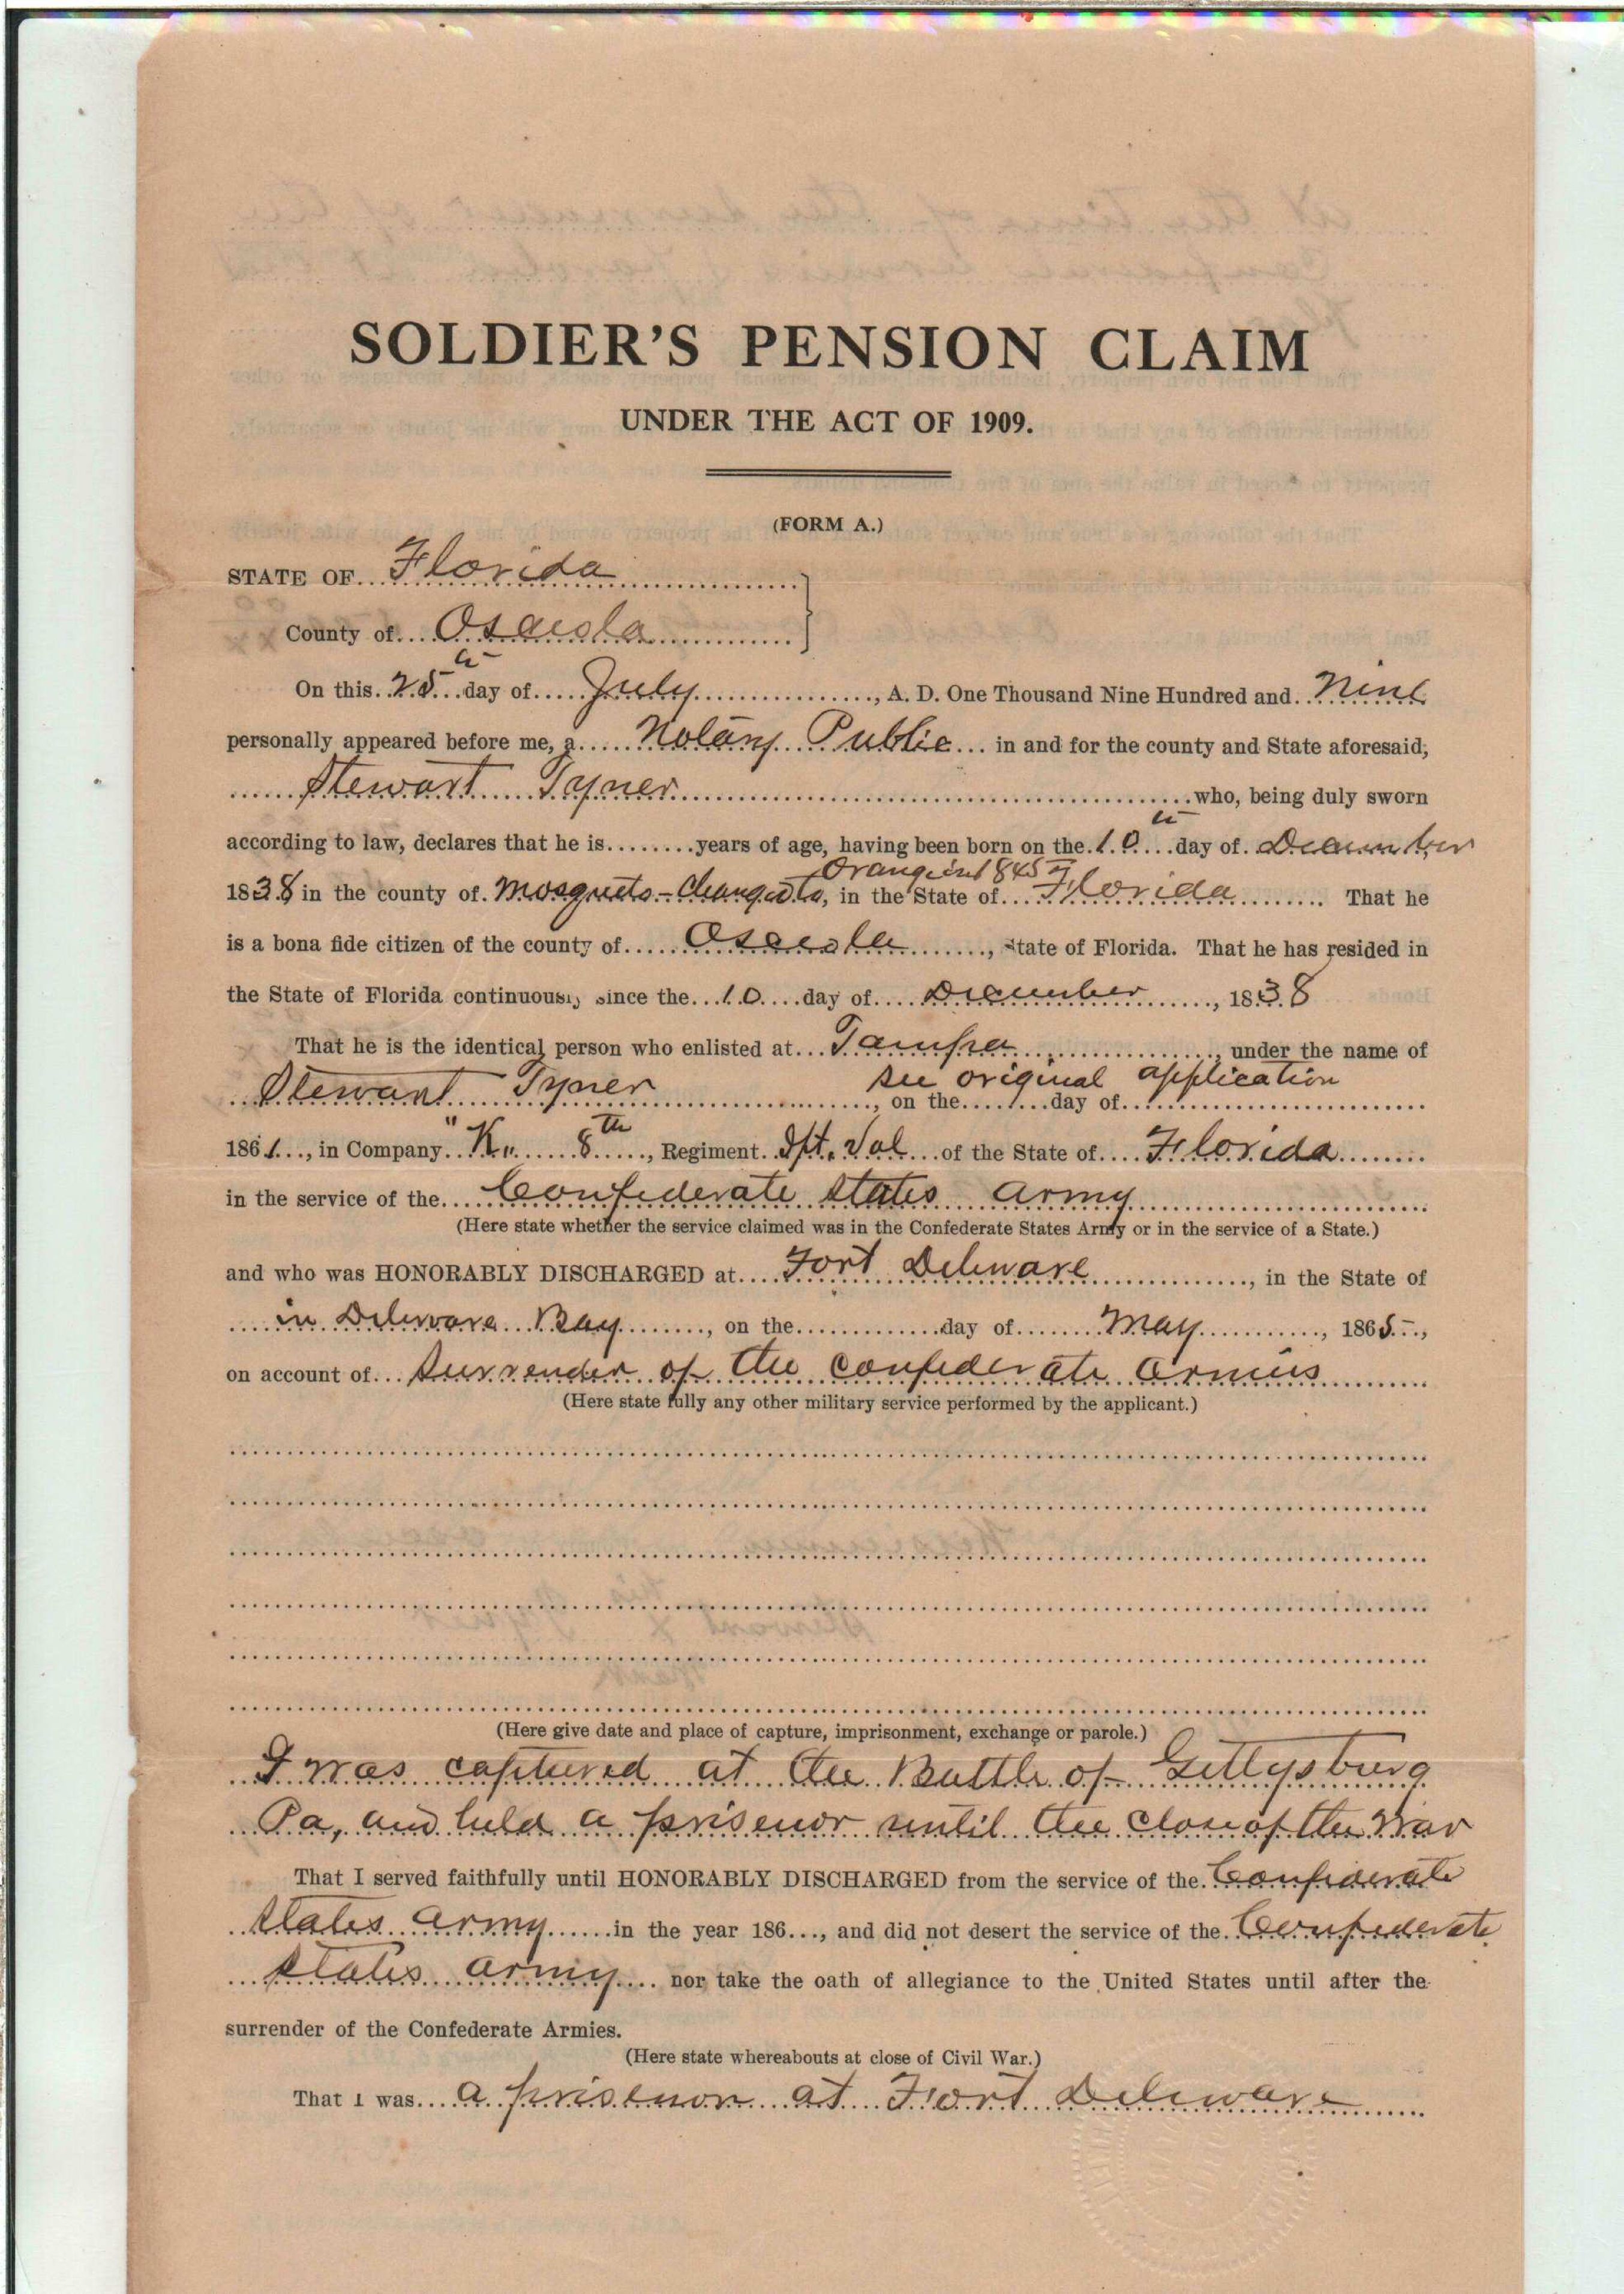 SOLDIER'S PENSION CLAIM
UNDER THE ACT OF 1909.
(FORM A.)
STATE OF Florida
County of Osceola
On this 25th day of July, A. D. One Thousand Nine Hundred and Nine
personally appeared before me, a Notary Public in and for the county and State aforesaid,
Stewart Tyner who, being duly sworn
according to law, declares that he is ........ years of age, having been born on the 10th day of December
Orange in 1845
1838 in the county of Mosqueto - Changed to, in the State of Florida That he
is a bona fide citizen of the county of Osceola, State of Florida. That he has resided in
the State of Florida continuously since the 10 day of December, 1838
That he is the identical person who enlisted at Tampa, under the name of
see original application
Stewart Tyner, on the ........ day of ........
1861, in Company "K" 8th, Regiment Ift. Vol of the State of Florida
in the service of the Confederate States Army
(Here state whether the service claimed was in the Confederate States Army or in the service of a State.)
and who was HONORABLY DISCHARGED at Fort Deleware, in the State of
in Deleware Bay, on the ........ day of May, 1865,
on account of Surrender of the Confederate Armies
(Here state fully any other military service performed by the applicant.)
(Here give date and place of capture, imprisonment, exchange or parole.)
I was captured at the Battle of Gettysburg
Pa, and held a prisenor until the close of the War
That I served faithfully until HONORABLY DISCHARGED from the service of the Confederate
States Army in the year 186..., and did not desert the service of the Confederate
States Army nor take the oath of allegiance to the United States until after the
surrender of the Confederate Armies.
(Here state whereabouts at close of Civil War.)
That I was a prisenor at Fort Deleware